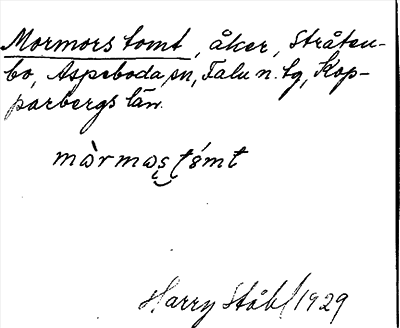 Mormors tomt, åker, Stråten-
bo, Aspeboda sn, Falu n. tg, Kop-
parbergs län.
Harry Ståhl 1929